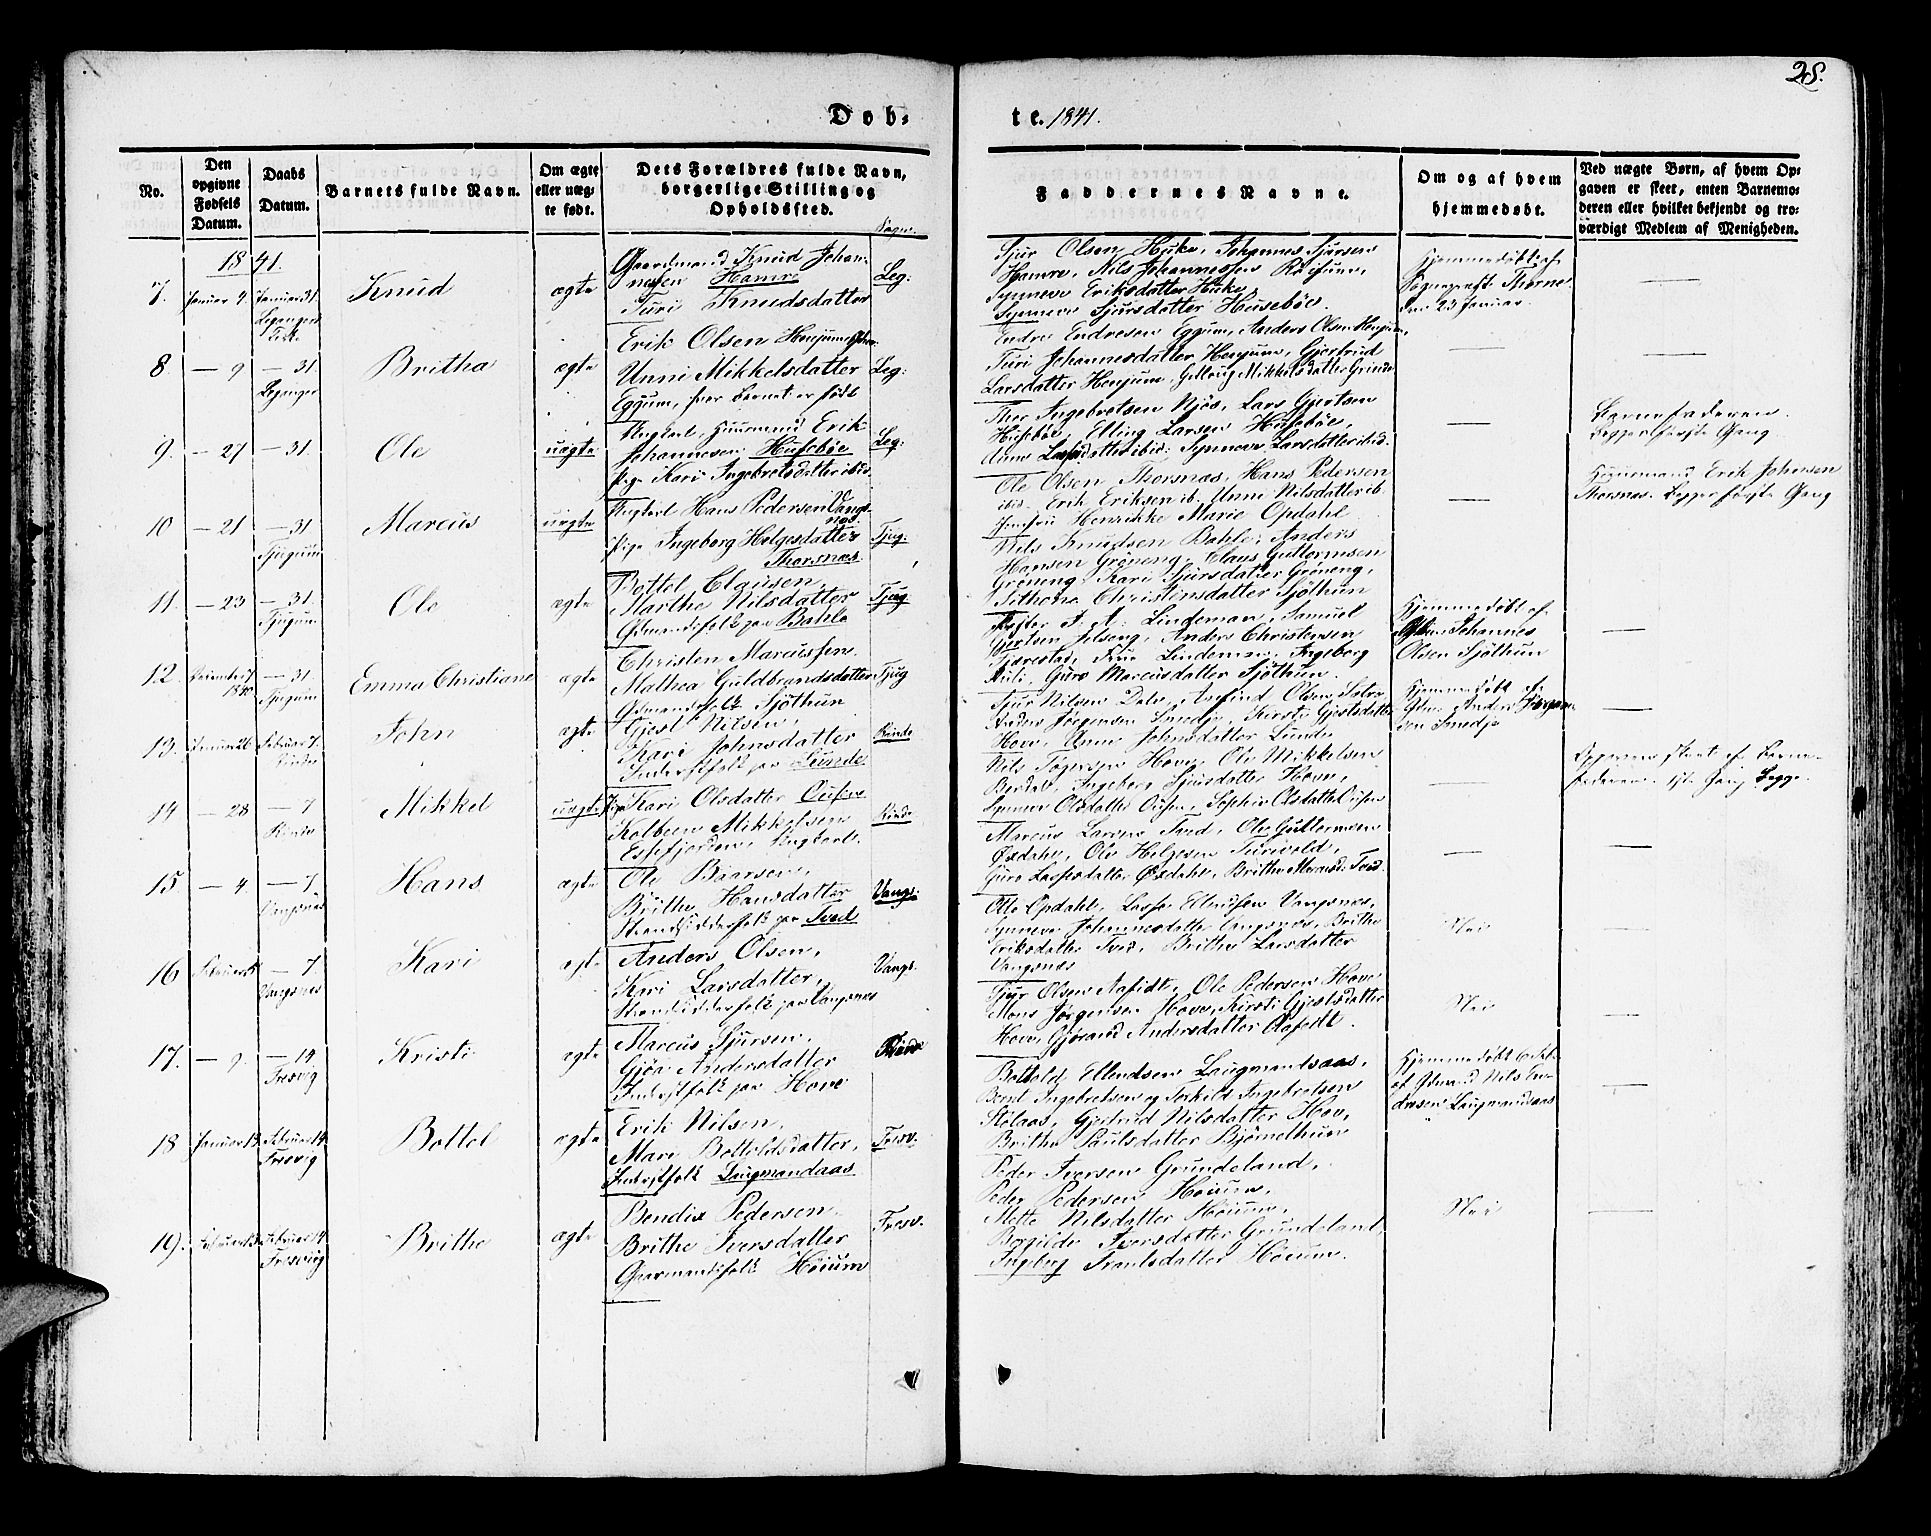 28.
Døb-
te. 1841.
No.
Den opgivne Fødsels Datum.
Daabs Datum.
Barnets fulde Navn.
Om ægte eller uægte født.
Dets Forældres fulde Navn, borgerlige Stilling og Opholdssted.
Sogn.
Faddernes Navne.
Om og af hvem hjemmedøbt.
Ved uægte Børn, af hvem Opgaven er skeet, enten Barnemoderen eller hvilket bekjendt og troværdigt Medlem af Menigheden.
1841.
7. Januar 9 Januar 31. Leganger Knud ægte
Gaardmand Knud Johannessen Hamre
Turi Knudsdatter
Leg:
Sjur Olsen Huke, Johannes Sjursen
Hamre, Nils Johannessen
Synneve Eriksdatter Huke,
Synneve Sjursdatter Husebøe.
Hjemmedøbt af
Thorne
den 23 Januar.
8. — 9 — 31. Leganger Britha ægte
Erik Olsen Henjum
Unni Mikkelsdatter
Eggum, hvor Barnet er født
Leg:
Endre Endresen Eggum, Anders Olsen Henjum,
Turi Johannesdatter Henjum, Gjertrud
Larsdatter Henjum, Mikkelsdatter Grinde
9. — 27 — 31. Ole uægte
Ungkarl, Huusmand Erik
Johannesen Husebøe
Pige Kari Ingebretsdatter ibid
Leg:
Thor Ingebretsen Njøs, Lars Gjertsen
Husebøe, Elling Larsen Husebøe,
Anne Larsdatter ibid: Synneve Larsdatter ibid.
Barnefaderen.
Begges første Gang
10 — 21 — 31 Tjugum Marcus uægte
Ungkarl Hans Pedersen Vangsnæs
Pige Ingeborg Helgesdatter
Thorsnæs
Tjug:
Ole Olsen Thorsnæs, Hans Pedersen
ibid. Erik Eriksen ib. Unni Nilsdatter ib.
Jomfru Henrikke Marie Opdahl
Huusmand Erik Johnsen
Thorsnæs. Begges første Gang
11. — 23 — 31. Tjugum Ole ægte
Bottol Clausen,
Marthe Nilsdatter
Gdmandsfolk paa Bahle
Tjug:
Nils Knudsen Bahle, Anders
Hansen Grøneng, Claus Guttormsen
Grøneng, Kari Sjursdatter Grøneng,
Christensdatter Sjøthun
12. 1840 — 31. Tjugum Emma Christiane ægte
Christen Marcussen.
Mathea Guldbrandsdatter
Gdmandsfolk Sjøthun
Tjug
Lindeman, Samuel
Gjertsen Anders Christensen
Tjærestad, Frue Lindeman, Ingeborg
Guro Marcusdatter Sjøthun.
Hjemmedøbt af
Johannes
Olsen Sjøthun
13. Januar 26 Februar 7. Rinde John ægte
Gjest Nilsen,
Kari Johnsdatter
Inderstfolk paa Lunde
Rinde
Sjur Nilsen Dale, Olsen
Anders Jørgensen Smedje, Kirsti Gjestsdatter
Hove, Anne Johnsdatter Lunde
Hjemmedøbt af
Gdm. Anders Jørgensen Smedje
14 — 28 — 7 Rinde Mikkel uægte
Pige Kari Olsdatter
Kolbeen Mikkelsen
Essefjorden, Ungkarl.
Rinde
Nils Hove, Ole Mikkelsen
Ingeborg Sjursdatter Hove,
Synneve Olsdatter Sophie Olsdatter
1ste Gang Begge.
15 — 4 — 7 Vangsnæs Hans ægte
Ole
Brithe Hansdatter
Strandsidderfolk paa Tved
Vangs:
Marcus Larsen Tved, Ole Guttormsen
Øxdahl, Ole Helgesen
Guro Lassesdatter Øxdahl, Brithe Tved.
16 Februar — 7. Vangsnæs Kari ægte
Anders Olsen,
Kari Larsdatter,
Strandsidderfolk paa Vangsnæs
Vangs.
Otto Opdahl, Lasse Ellendsen Vangsnæs,
Synneve Johannesdatter Vangsnæs, Brithe
Eriksdatter Tved, Brithe Larsdatter
Vangsnæs
Nei
17. — 9. — 14 Fresvig Kristi ægte
Marcus Sjursen,
Gjøa Andersdatter
Inderstfolk paa Hove
Rinde
Sjur Olsen Ole Pedersen Hove
Mons Jørgensen Hove, Kirsti Gjestsdatter
Hove, Andersdatter
Nei
18 Januar 13. Februar 14. Fresvig Bottol ægte
Erik Nilsen,
Mari Bottolsdatter,
Inderstfolk Laugmandaas
Fresv.
Bottold Ellendsen Laugmandsaas,
Bernt Ingebretsen og Torkild Ingebretsen
Stølaas, Gjertrud Nilsdatter Hov,
Brithe Paulsdatter Bjørnethun
Hjemmedøbt
af Gdmand Nils
Laugmandsaas
19. Februar 13. Februar 14. Fresvig Brithe ægte
Bendix Pedersen
Brithe Iversdatter
Gaardmandsfolk Høium
Fresv.
Peder Iversen Grundeland,
Peder Pedersen Høium,
Mette Nilsdatter Høium,
Borgilde Iversdatter Grundeland,
Ingeborg Frantsdatter Høium.
Nei